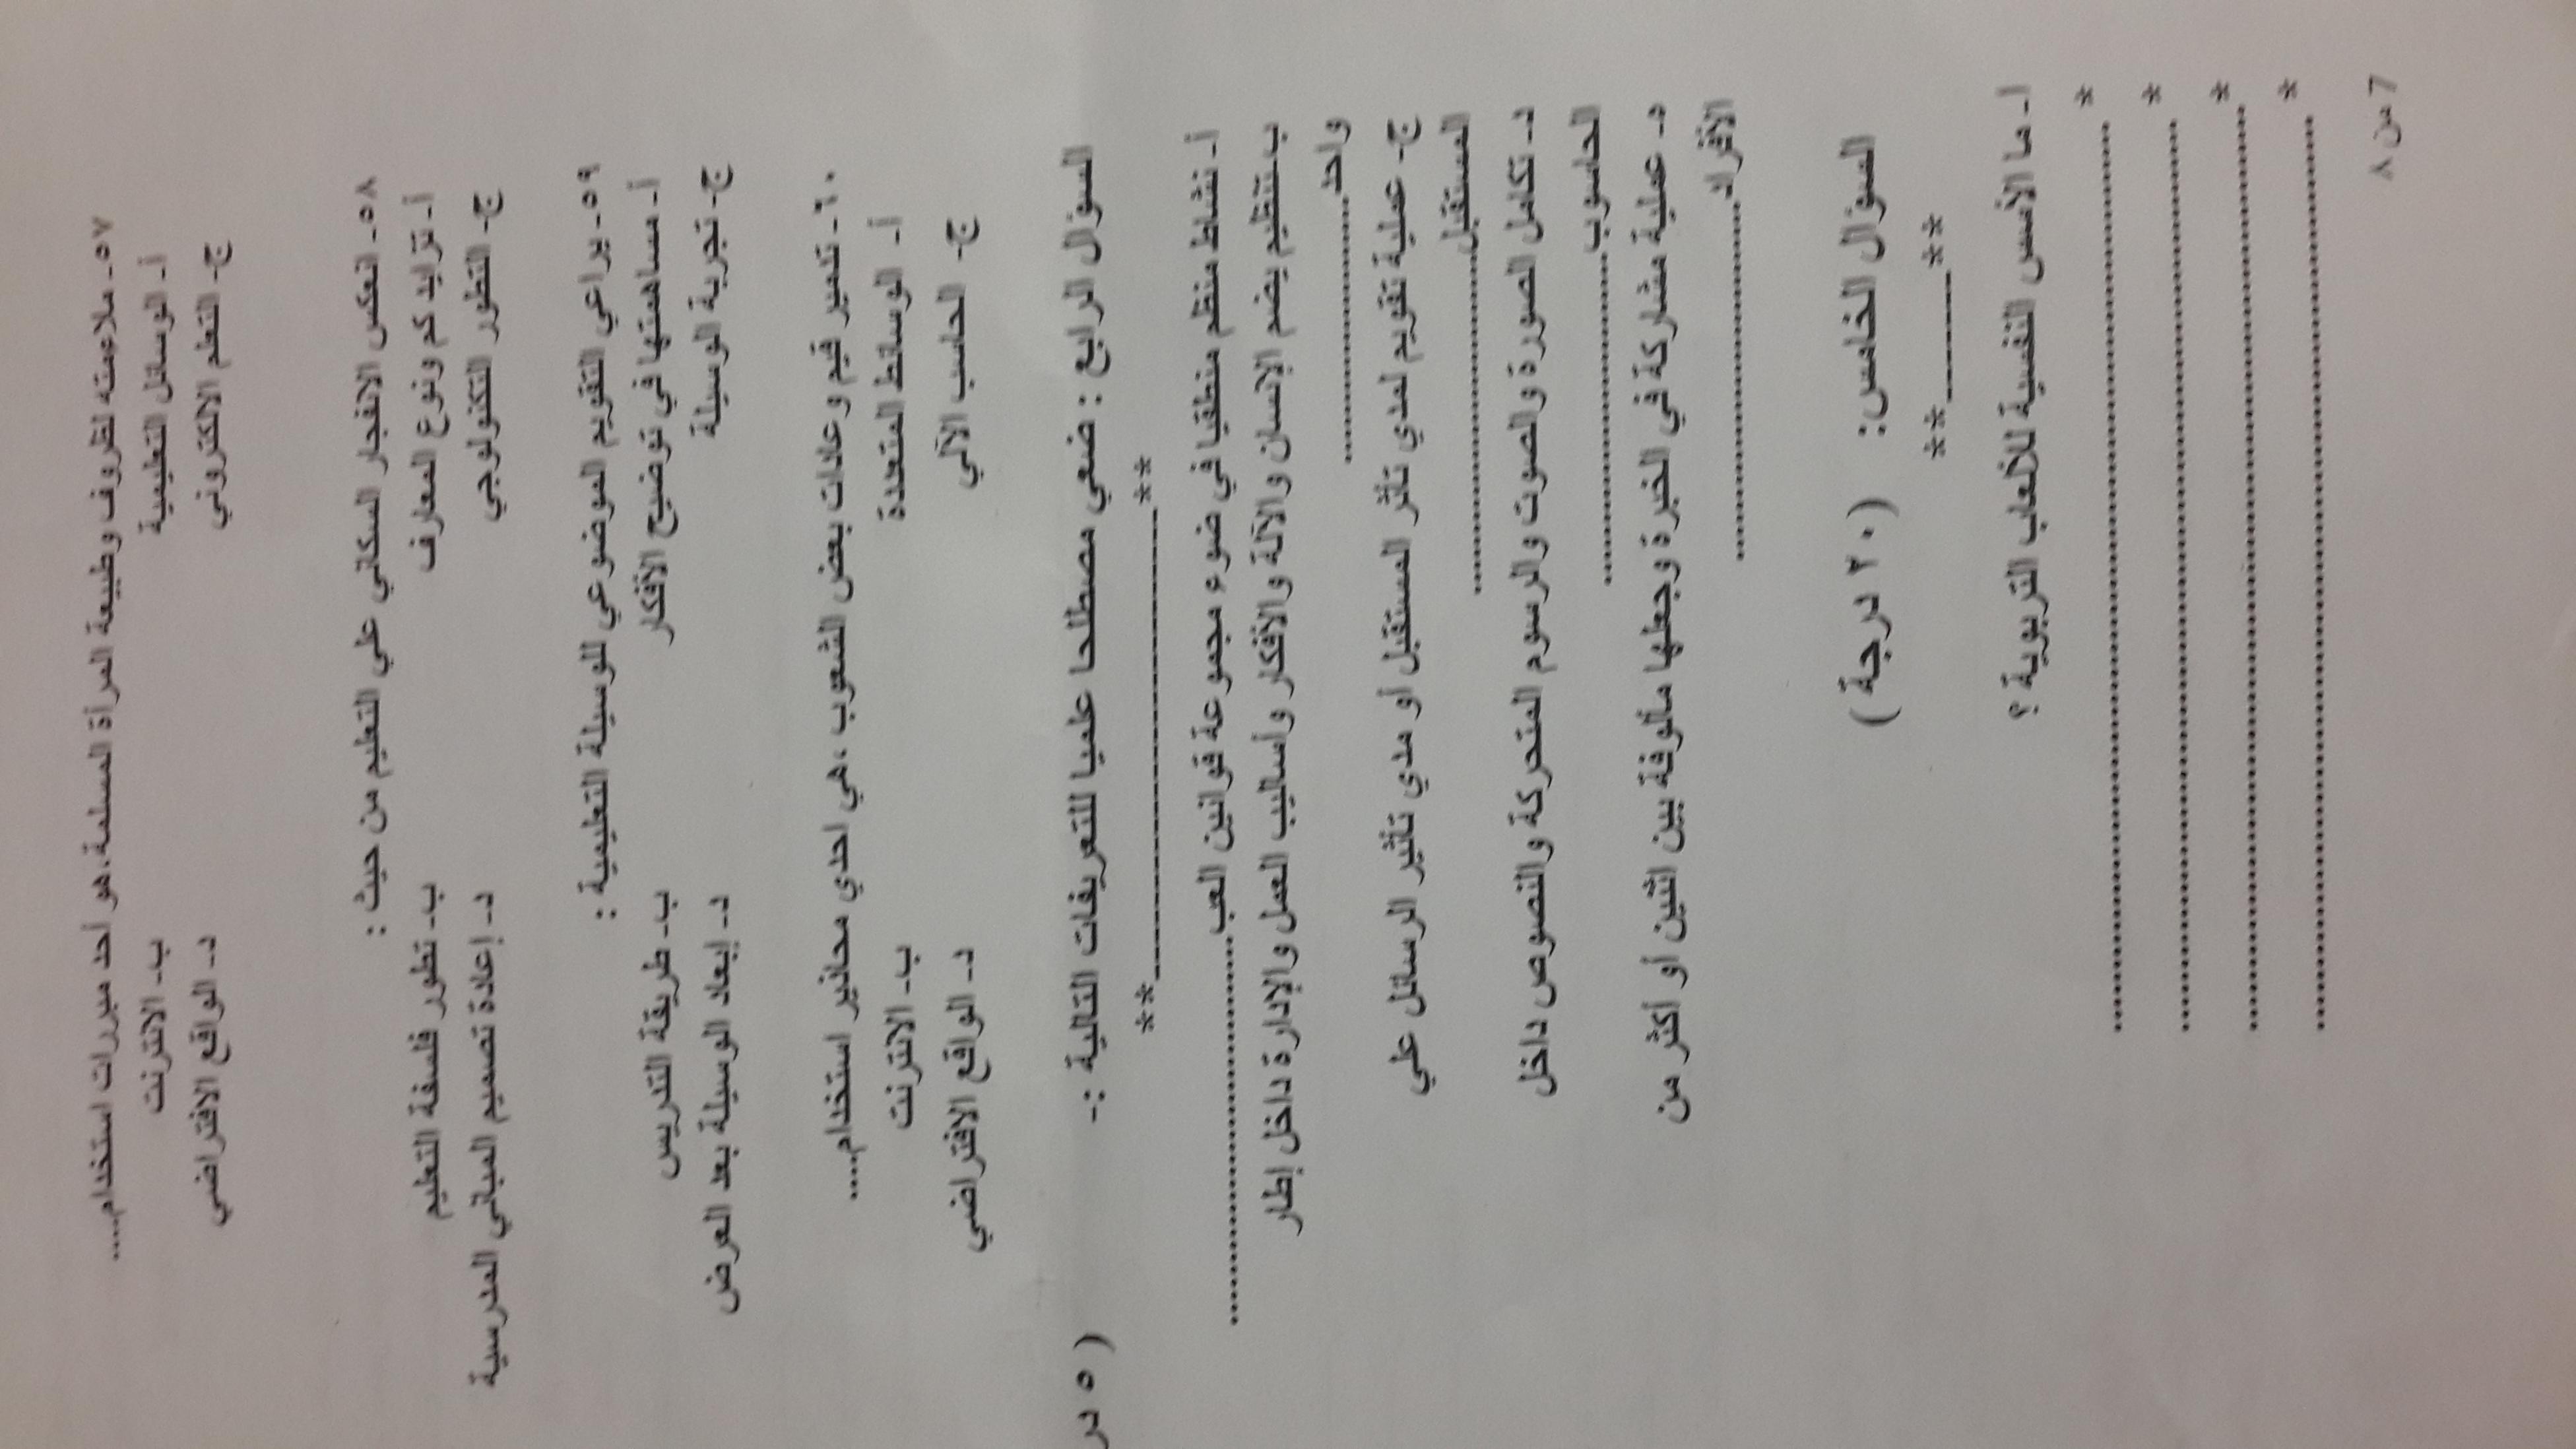 ٥٧- ملاءمته لظروف وطبيعة المرأة المسلمة، هو أحد مبررات استخدام....
أ- الوسائل التعليمية ب- الانترنت
ج- التعلم الالكتروني د- الواقع الافتراضي
٥٨- انعكس الانفجار السكاني علي التعليم من حيث :
أ- تزايد كم ونوع المعارف ب- تطور فلسفة التعليم
ج- التطور التكنولوجي د- إعادة تصميم المباني المدرسية
٥٩- يراعي التقويم الموضوعي للوسيلة التعليمية :
أ- مساهمتها في توضيح الأفكار ب- طريقة التدريس
ج- تجربة الوسيلة د- إبعاد الوسيلة بعد العرض
٦٠- تدمير قيم وعادات بعض الشعوب ،هي احدي محاذير استخدام....
أ- الوسائط المتعددة ب- الانترنت
ج- الحاسب الآلي د- الواقع الافتراضي
السؤال الرابع : ضعي مصطلحا علميا للتعريفات التالية :- ( ٥ در
**____________**
أ- نشاط منظم منطقيا في ضوء مجموعة قوانين العب..............................
ب- تنظيم يضم الإنسان والآلة والأفكار وأساليب العمل والإدارة داخل إطار
واحد..............................
ج- عملية تقويم لمدي تأثر المستقبل أو مدي تأثير الرسائل علي
المستقبل..............................
د- تكامل الصورة والصوت والرسوم المتحركة والنصوص داخل
الحاسوب..............................
ه- عملية مشاركة في الخبرة وجعلها مألوفة بين اثنين أو أكثر من
الأفراد..............................
السؤال الخامس: ( ٢٠ درجة )
**______**
ا- ما الأسس النفسية للألعاب التربوية ؟
*............................................................
*............................................................
*............................................................
*............................................................
7 من ٨